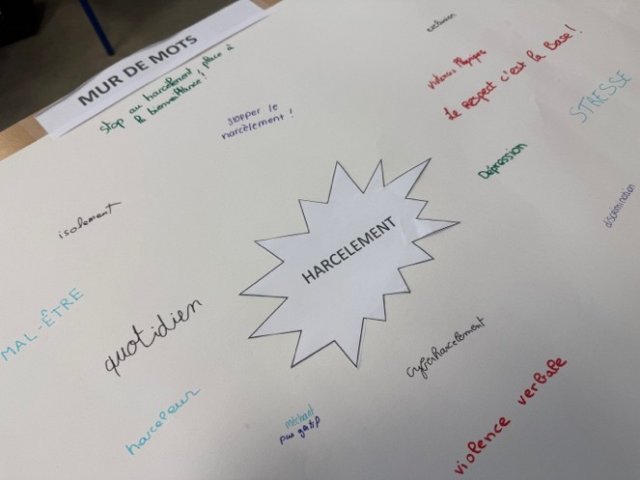 MUR DE MOTS
Stop au harcellement place à
la bienveillance !
stopper le
harcèlement !
exclusion
violences Physiques
Le Respect c'est la Base !
STRESSE
Dépression
discrimination
isolement
HARCELEMENT
MAL-ÊTRE
quotidien
cyberharcelement
harceleur
méchant
pas gentil
violence verbale